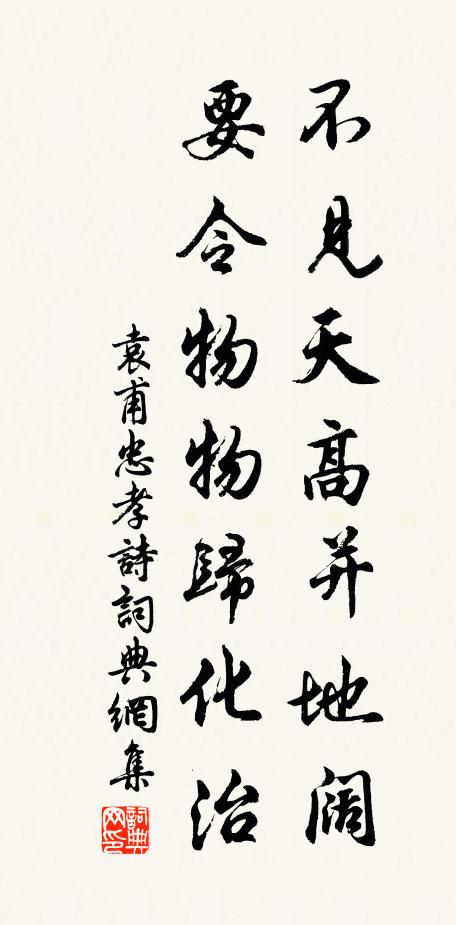 不見天高并地闊
要令物物歸化治
袁甫忠孝詩詞典網集
詞典網印